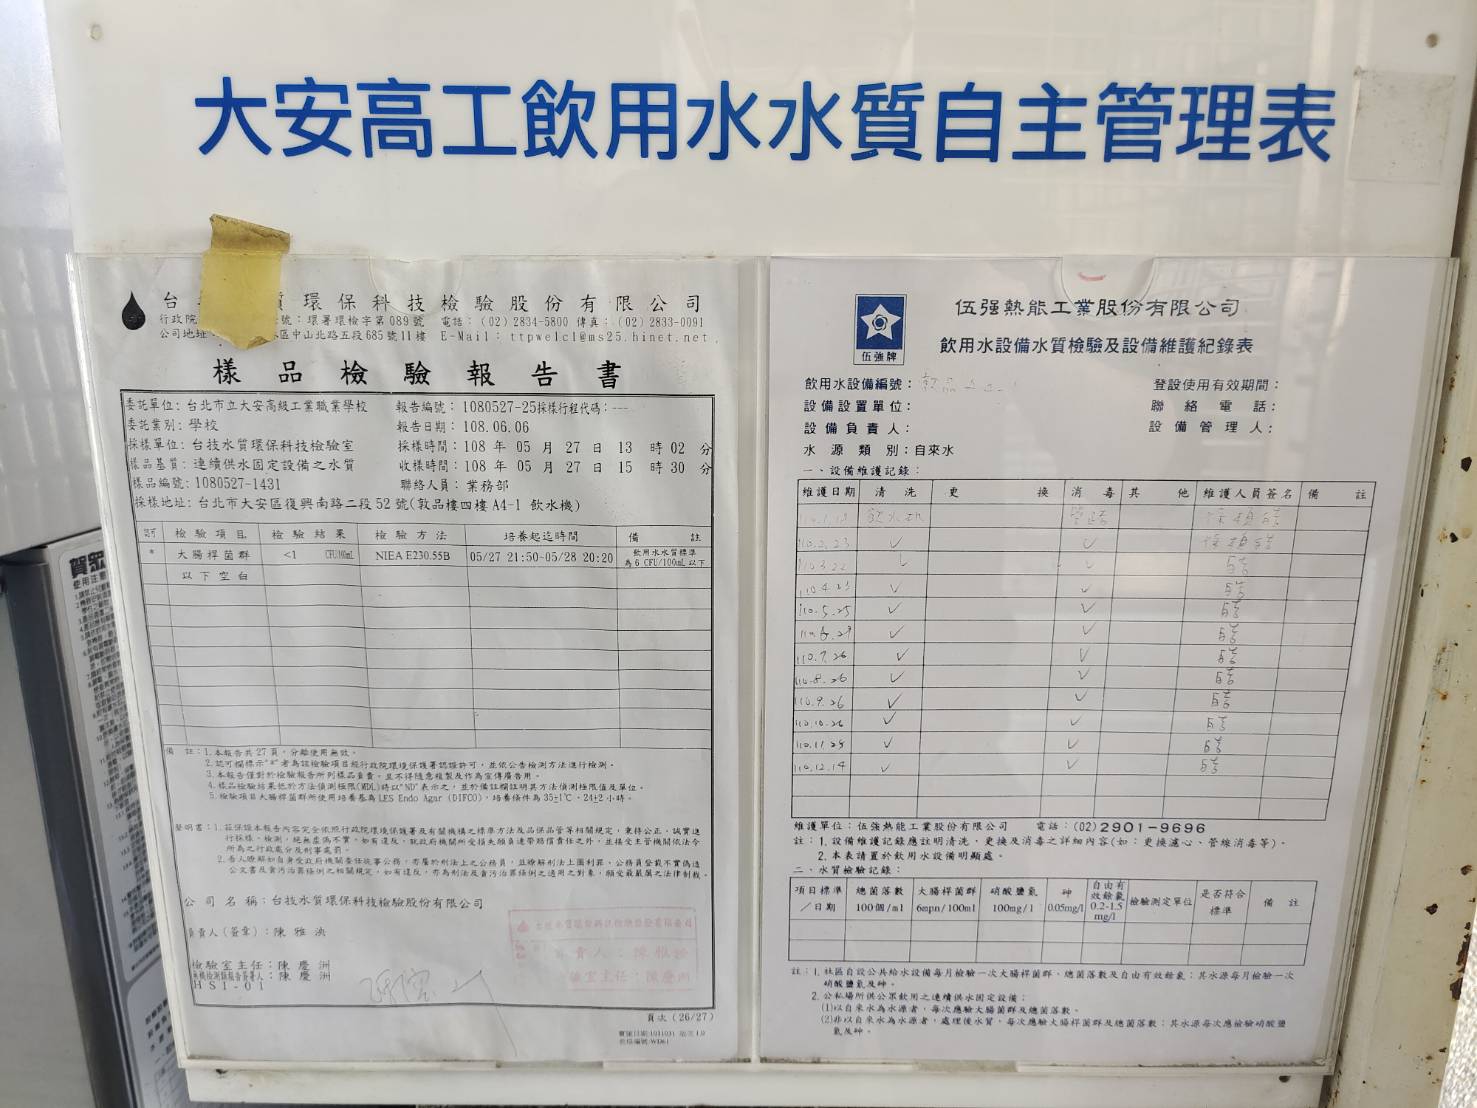 大安高工飲用水水質自主管理表
台 質 環 保 科 技 檢 驗 股 份 有 限 公 司
行政院 號：環署環檢字第 089 號 電話：(02) 2834-5800 傳真：(02) 2833-0091
公司地址 區中山北路五段 685 號 11 樓 E-Mail：ttpwelcl@ms25.hinet.net
樣 品 檢 驗 報 告 書
委託單位：台北市立大安高級工業職業學校 報告編號：1080527-25採樣行程代碼：---
委託業別：學校 報告日期：108.06.06
採樣單位：台技水質環保科技檢驗室 採樣時間：108 年 05 月 27 日 13 時 02 分
樣品基質：連續供水固定設備之水質 收樣時間：108 年 05 月 27 日 15 時 30 分
樣品編號：1080527-1431 聯絡人員：業務部
採樣地址：台北市大安區復興南路二段 52 號(敦品樓四樓 A4-1 飲水機)
認可 檢 驗 項 目 檢 驗 結 果 檢 驗 方 法 培養起迄時間 備 註
* 大腸桿菌群 <1 CFU/100mL NIEA E230.55B 05/27 21:50~05/28 20:20 飲用水水質標準
為 6 CFU/100mL 以下
以 下 空 白
備 註：1.本報告共 27 頁，分離使用無效。
2.認可欄標示"*"者為該檢驗項目經行政院環境保護署認證許可，並依公告檢測方法進行檢測。
3.本報告僅對於檢驗報告所列樣品負責，且不得隨意複製及作為宣傳廣告用。
4.樣品檢驗結果低於方法偵測極限(MDL)時以"ND"表示之，並於備註欄註明其方法偵測極限值及單位。
5.檢驗項目大腸桿菌群所使用培養基為 LES Endo Agar (DIFCO)，培養條件為 35±1℃、24±2 小時。
聲明書：1.茲保證本報告內容完全依照行政院環境保護署及有關機構之標準方法及品保品管等相關規定，秉持公正、誠實進
行採樣、檢測，絕無虛偽不實，如有違反，就政府機關所受損失願負連帶賠償責任之外，並接受主管機關依法令
所為之行政處分及刑事處罰。
2.吾人瞭解如自身受政府機關委任從事公務，亦屬於刑法上之公務員，並瞭解刑法上圖利罪、公務員登載不實偽造
公文書及貪污治罪條例之相關規定，如有違反，亦為刑法及貪污治罪條例之適用之對象，願受最嚴厲之法律制裁。
公 司 名 稱：台技水質環保科技檢驗股份有限公司
負責人(簽章)：陳 雅
檢驗室主任：陳 慶 洲
無機檢測類報告簽署人：陳 慶 洲
HSI-01
頁次 (26/27)
伍強牌
伍强熱能工業股份有限公司
飲用水設備水質檢驗及設備維護紀錄表
飲用水設備編號： 登設使用有效期間：
設備設置單位： 聯 絡 電 話：
設 備 負 責 人： 設 備 管 理 人：
水 源 類 別：自來水
一、設備維護記錄：
維護日期 清 洗 更 換 消 毒 其 他 維護人員簽名 備 註
110.1.18 飲水機 管路
110.2.23 ✓ ✓
110.3.22 ✓ ✓
110.4.23 ✓ ✓
110.5.25 ✓ ✓
110.6.29 ✓ ✓
110.7.26 ✓ ✓
110.8.26 ✓ ✓
110.9.26 ✓ ✓
110.10.26 ✓ ✓
110.11.29 ✓ ✓
110.12.14 ✓ ✓
維護單位：伍強熱能工業股份有限公司 電話：(02)2901-9696
註：1.設備維護記錄應註明清洗、更換及消毒之詳細內容(如：更換濾心、管線消毒等)。
2.本表請置於飲用水設備明顯處。
二、水質檢驗記錄：
項目標準／日期 總菌落數 100個/ml 大腸桿菌群 6mpn/100ml 硝酸鹽氮 100mg/l 砷 0.05mg/l 自由有效餘氯 0.2-1.5 mg/l 檢驗測定單位 是否符合標準 備 註
註：1.社區自設公共給水設備每月檢驗一次大腸桿菌群、總菌落數及自由有效餘氯；其水源每月檢驗一次
硝酸鹽氮及砷。
2.公私場所供公眾飲用之連續供水固定設備：
(1)以自來水為水源者，每次應驗大腸桿菌群及總菌落數。
(2)非以自來水為水源者，處理後水質，每次應驗大腸桿菌群及總菌落數；其水源每次應檢驗硝酸鹽
氮及砷。